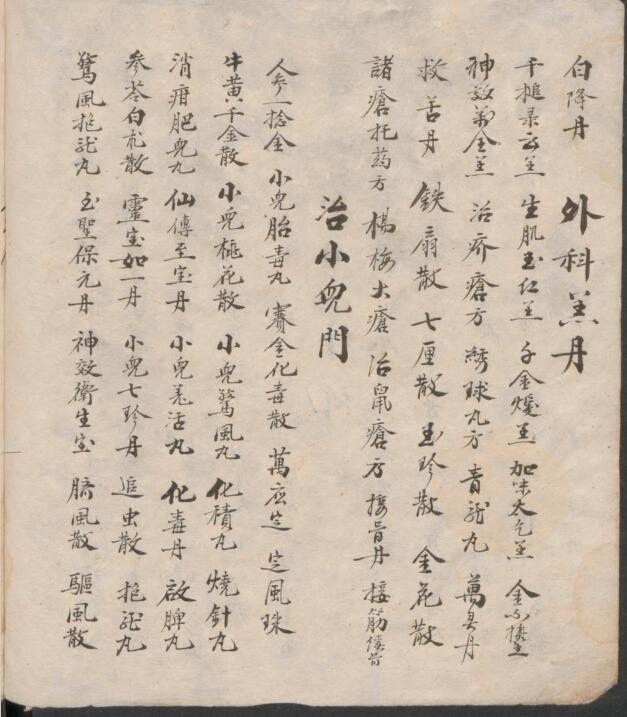 白降丹 外科羔丹
千槌云羔 生肌玉红羔 千金羔 加味太乙羔 金不
神效萬全羔 治疥瘡方 綉球丸方 青龍丸 萬灵丹
救苦丹 鉄扇散 七厘散 玉珍散 金花散
諸瘡托药方 楊梅大瘡 治鼠瘡方 接骨丹 接筋續骨
治小兒門
人參一捻金 小兒胎毒丸 賽金化毒散 萬应定 定風珠
牛黃千金散 小兒梔花散 小兒驚風丸 化積丸 燒針丸
消疳肥兒丸 仙傳至宝丹 小兒羌活丸 化毒丹 啟脾丸
參苓白朮散 靈宝如一丹 小兒七珍丹 追虫散 抱龍丸
驚風抱龍丸 玉聖保元丹 神效衛生宝 臍風散 驅風散